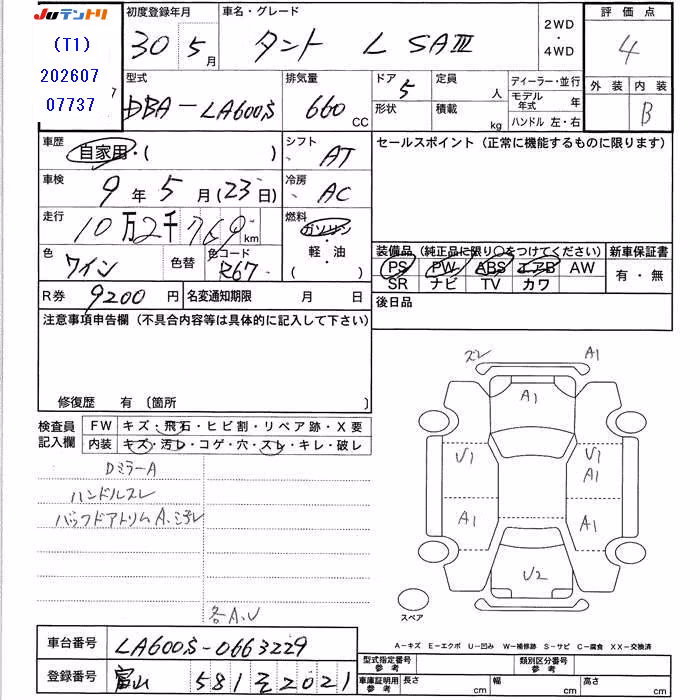 JUテントリ
(T1)
202607
07737
初度登録年月
30 5月
車名・グレード
タント L SAⅢ
2WD
・
4WD
評価点
4
外装 内装
B
型式
DBA-LA600S
排気量
660 CC
ドア
5
形状
定員
人
積載
kg
ディーラー・並行
モデル年式 年
ハンドル 左・右
車歴
自家用・( )
シフト
AT
車検
9年5月(23日)
冷房
AC
走行
10万2千769km
燃料
ガソリン
・
軽・油
( )
色
ワイン
色替
色コード
R67
R券 9200円
名変通知期限 月 日
セールスポイント(正常に機能するものに限ります)
装備品(純正品に限り○をつけてください)
PS PW ABS エアB AW
SR ナビ TV カワ
新車保証書
有・無
後日品
注意事項申告欄(不具合内容等は具体的に記入して下さい)
修復歴 有(箇所 )
検査員
記入欄
FW キズ・飛石・ヒビ割・リペア跡・X要
内装 キズ・汚レ・コゲ・穴・スレ・キレ・破レ
DミラーA
ハンドルスレ
バックドアトリムA、ヨゴレ
各A、U
ズレ A1
A1
U1 U1
A1
A1 A1
U2
スペア
A-キズ E-エクボ U-凹み W-補修跡 S-サビ C-腐食 XX-交換済
車台番号 LA600S-0663229
登録番号 富山 581 そ 2021
型式指定番号
参考
類別区分番号
参考
車庫証明用
参考
長さ cm 幅 cm 高さ cm